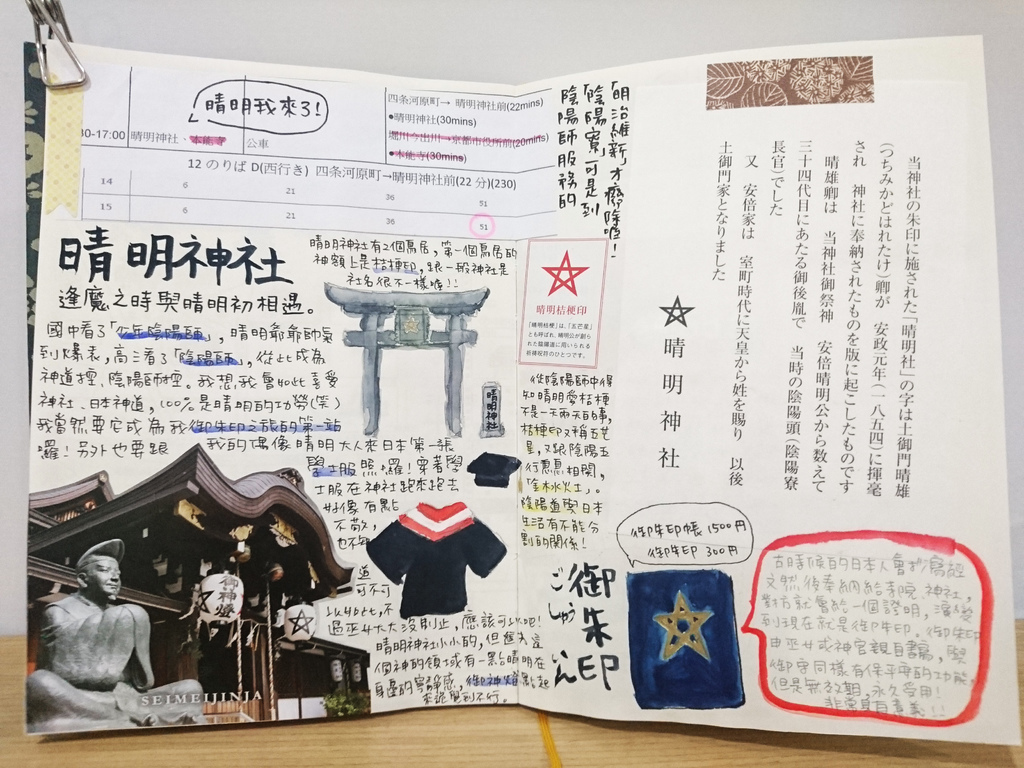 晴明我來了!
30-17:00
晴明神社、本能寺
公車
四条河原町→ 晴明神社前(22mins)
●晴明神社(30mins)
堀川今出川→京都市役所前(20mins)
●本能寺(30mins)
12 のりば D(西行き) 四条河原町→晴明神社前(22 分)(230)
14 6 21 36 51
15 6 21 36 51
晴明神社
逢魔之時與晴明初相遇。
國中看了「少年陰陽師」,晴明爺爺帥氣
到爆表,高三看了「陰陽師」,從此成為
神道控、陰陽師控。我想,我會如此喜愛
神社、日本神道,100%是晴明的功勞(笑)
我當然要它成為我御朱印之旅的第一站
囉!另外也要跟
我的偶像晴明大人來日本第一張
學士服照囉!穿著學
士服在神社跑來跑去
好像有點
不敬,
也不知
道
可不可
以如此,不
過巫女大大沒制止,應該可以吧!
晴明神社小小的,但舊為這
個神的領域有一點晴明在
身邊的寧靜感,御神燈點起
來就
不行。
晴明神社有2個鳥居,第一個鳥居的
神額上是桔梗印,跟一般神社是
社名很不一樣喲!!
晴明神社
御神燈
SEIMEIJINJA
「明治維新」才廢除喔!
「陰陽寮」可是到
陰陽師服務的
晴明桔梗印
「晴明桔梗」は、「五芒星」
とも呼ばれ、晴明公が創ら
れた陰陽道に用いられる
祈祷呪符のひとつです。
從陰陽師中得
知晴明愛桔梗
不是一天兩天的事,
桔梗印又稱五芒
星,又跟陰陽五
行息息相關,
「金木水火土」。
陰陽道與日本
生活有不能分
割的關係!
当神社の朱印に施された「晴明社」の字は土御門晴雄
(つちみかどはれたけ)卿が 安政元年(一八五四)に揮毫
され 神社に奉納されたものを版に起こしたものです
晴雄卿は 当神社御祭神 安倍晴明公から数えて
三十四代目にあたる御後胤で 当時の陰陽頭(陰陽寮
長官)でした
又 安倍家は 室町時代に天皇から姓を賜り 以後
土御門家となりました
晴明神社
御朱印
ごしゅいん
御朱印帳 1500円
御朱印 300円
古時候的日本人會抄寫經
文然後奉納給寺院、神社,
對方就會給一個證明,演變
到現在就是御朱印。御朱印
由巫女或神官親自書寫,與
御守同樣有保平安的功能,
但是無效期,永久受用!
非常具有意義!!